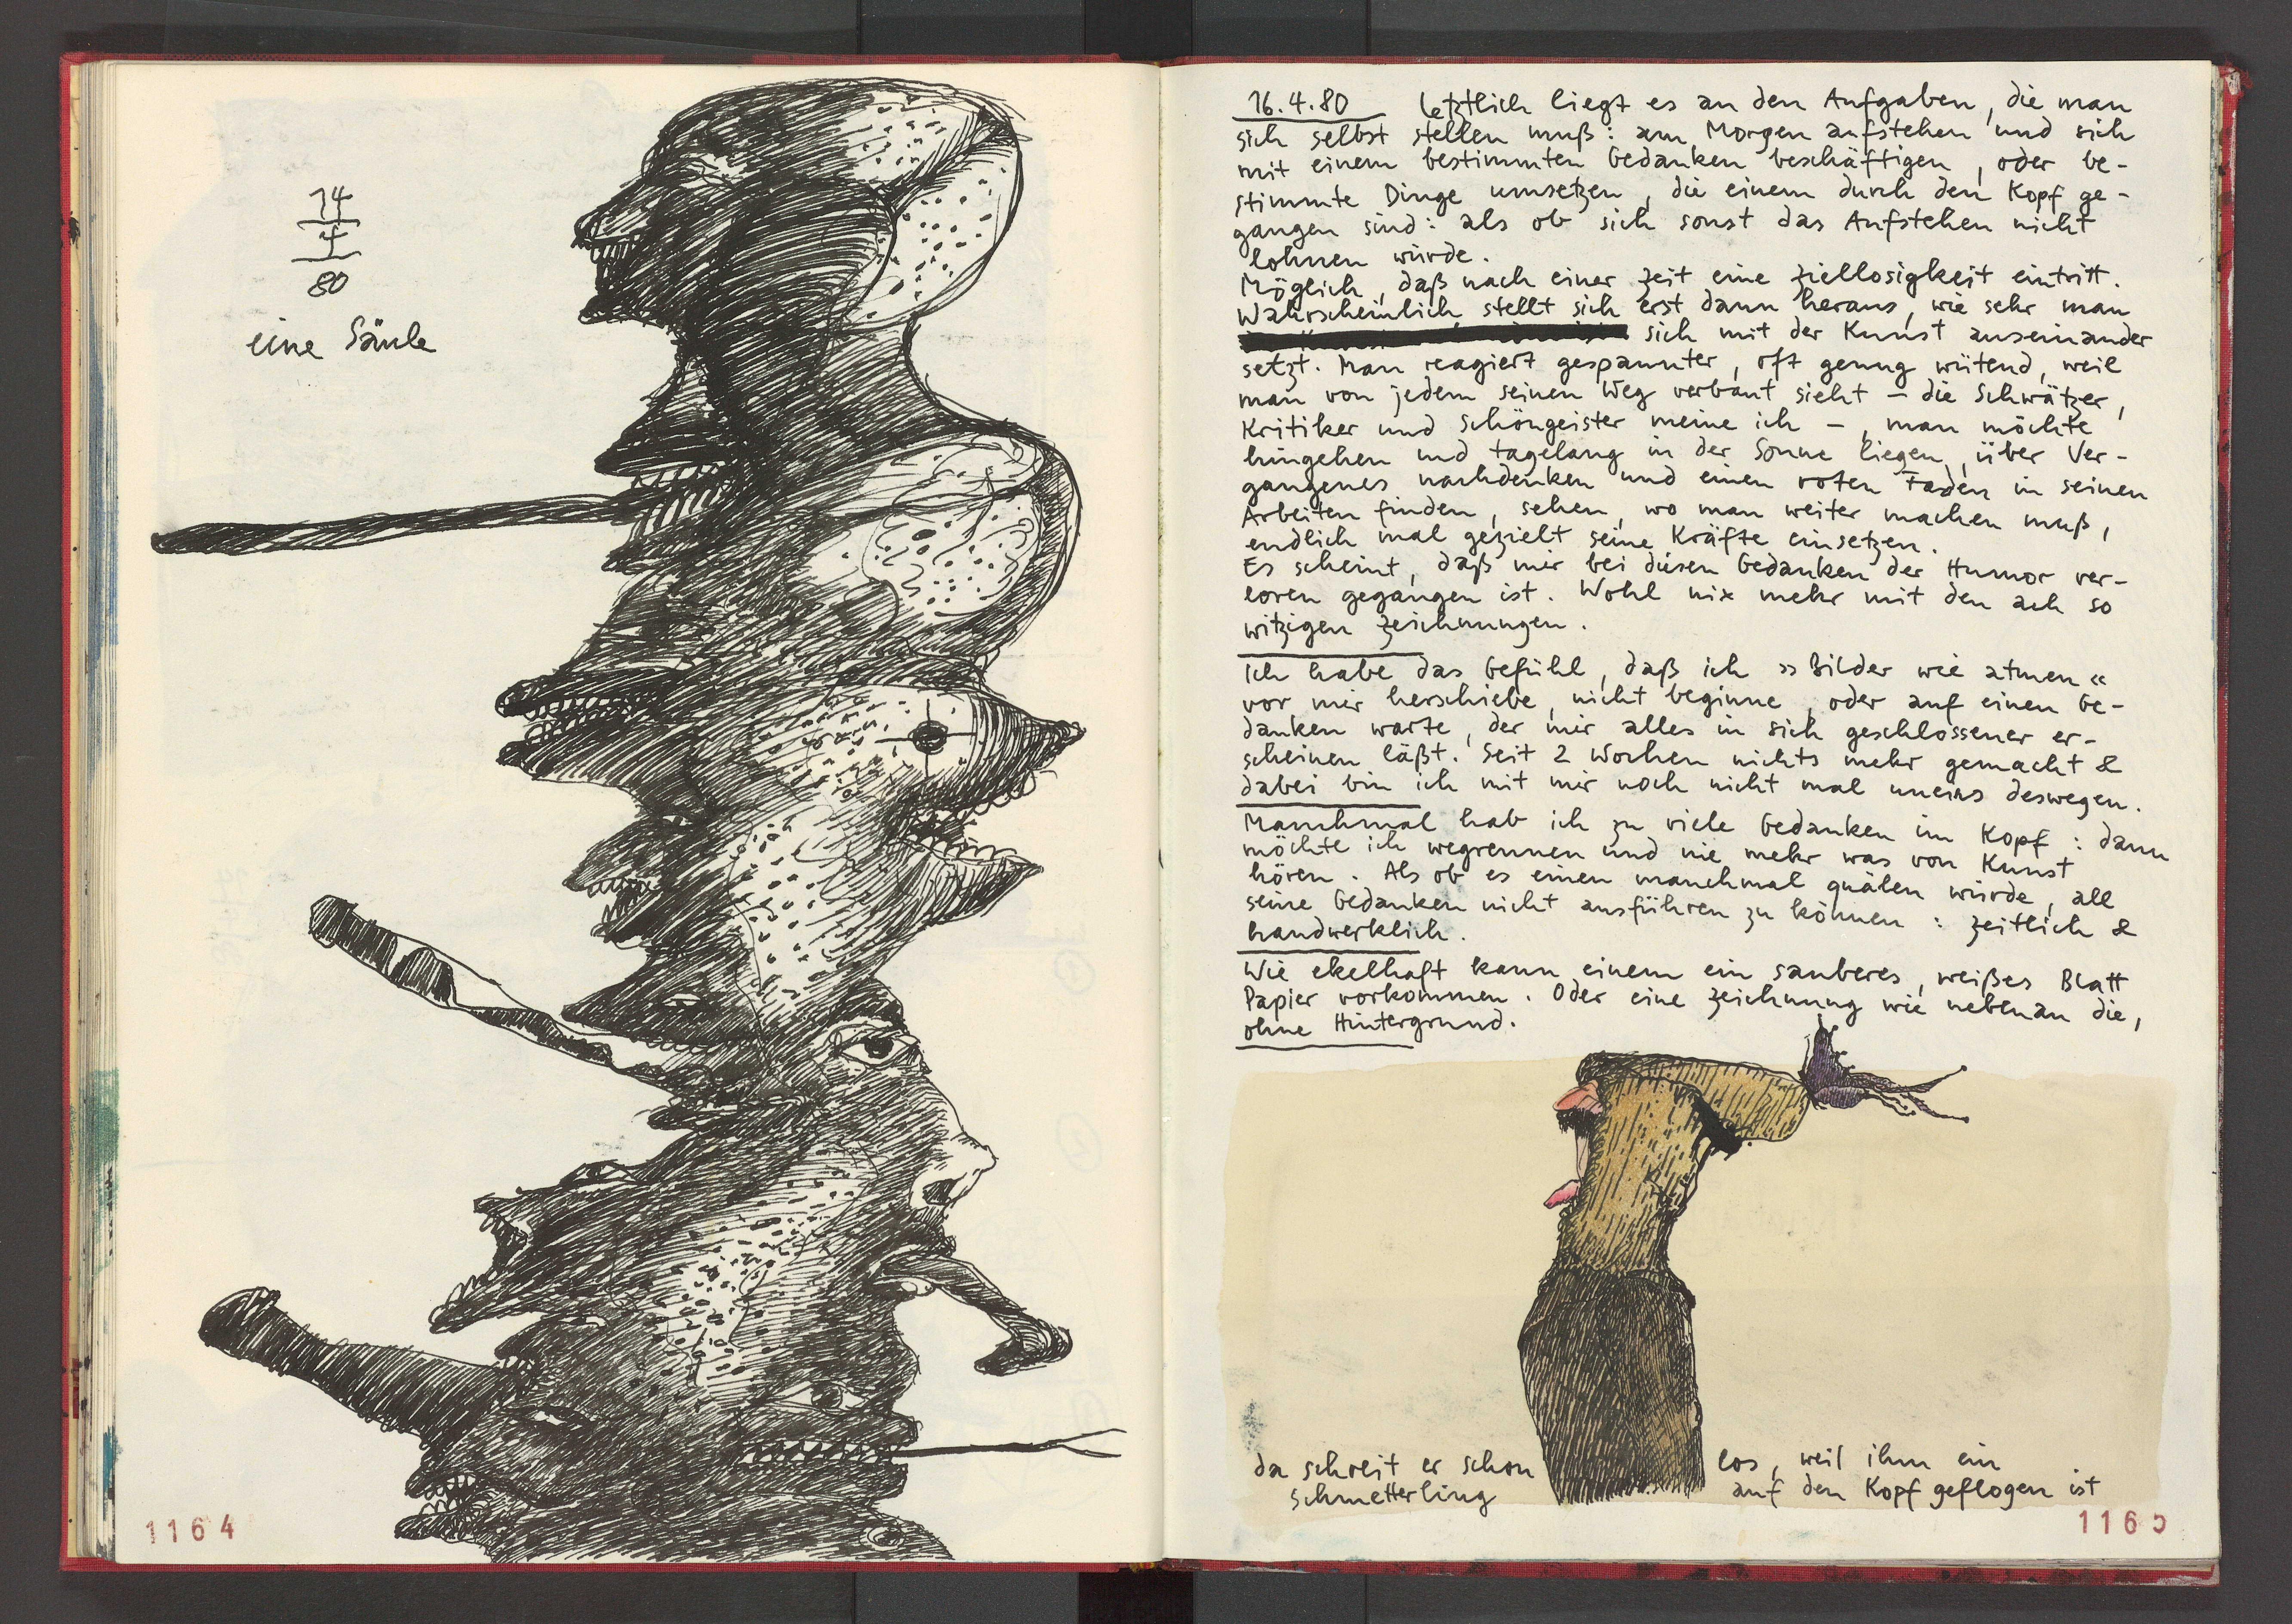 14
4
80
eine Säule
1164
16.4.80 Letztlich liegt es an den Aufgaben, die man
sich selbst stellen muß: am Morgen aufstehen und sich
mit einem bestimmten Gedanken beschäftigen, oder be-
stimmte Dinge umsetzen, die einem durch den Kopf ge-
gangen sind: als ob sich sonst das Aufstehen nicht
lohnen würde.
Möglich, daß nach einer Zeit eine Ziellosigkeit eintritt.
Wahrscheinlich stellt sich erst dann heraus, wie sehr man
sich mit der Kunst auseinander
setzt. Man reagiert gespannter, oft genug wütend, weil
man von jedem seinen Weg verbaut sieht – die Schwätzer,
Kritiker und Schöngeister meine ich –, man möchte
hingehen und tagelang in der Sonne liegen, über Ver-
gangenes nachdenken und einen roten Faden in seinen
Arbeiten finden, sehen, wo man weiter machen muß,
endlich mal gezielt seine Kräfte einsetzen.
Es scheint, daß mir bei diesen Gedanken der Humor ver-
loren gegangen ist. Wohl nix mehr mit den ach so
witzigen Zeichnungen.
Ich habe das Gefühl, daß ich »Bilder wie atmen«
vor mir herschiebe, nicht beginne, oder auf einen Ge-
danken warte, der mir alles in sich geschlossener er-
scheinen läßt. Seit 2 Wochen nichts mehr gemacht &
dabei bin ich mit mir noch nicht mal uneins deswegen.
Manchmal hab ich zu viele Gedanken im Kopf: dann
möchte ich wegrennen und nie mehr was von Kunst
hören. Als ob es einen manchmal quälen würde, all
seine Gedanken nicht ausführen zu können: zeitlich &
handwerklich.
Wie ekelhaft kann einem ein sauberes, weißes Blatt
Papier vorkommen. Oder eine Zeichnung wie nebenan die,
ohne Hintergrund.
da schreit er schon los, weil ihm ein
Schmetterling auf den Kopf geflogen ist
1165